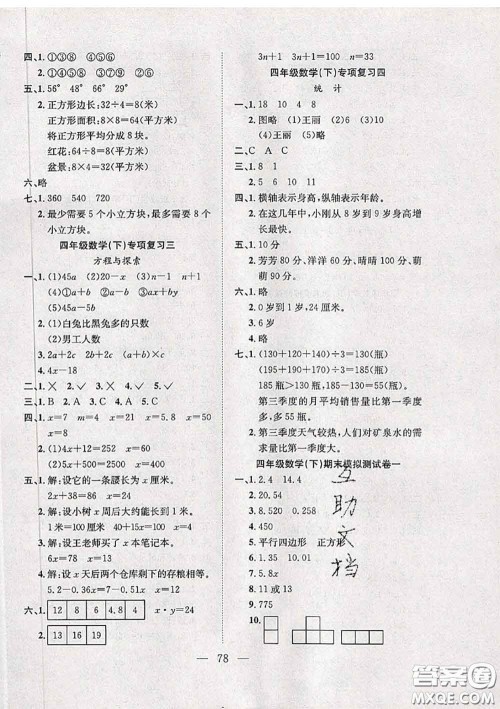 四、1. ①③⑧ ①④⑤⑥⑧
2. ①④⑤⑥⑧ ①③⑧
五、1. 56° 48° 66° 29°
2. 正方形边长:32÷4=8(米)
正方形面积:8×8=64(平方米)
将正方形平均分成 8 块。
红花:64÷8=8(平方米)
盆景:8×4=32(平方米)
六、略
七、1. 360 540 720
2. 最少需要 5 个小立方块,最多需要 8 个
小立方块。
四年级数学(下)专项复习三
方程与探索
一、1. (1)45a (2)20-x (3)n-1 n+1
(4)①a+b ②a+b-d
2. (1)白兔比黑兔多的只数
(2)男工人数
3. 2a+2c 2b+2c 2a+2b
4. 4x-18
二、1. ✕ 2. ✓ 3. ✕ 4. ✕ 5. ✓
三、1. B 2. A 3. C 4. B 5. A
四、1. x=7 m=4 x=21 x=5.8 x=50
x=8
2. (1)2x+12=34 x=11
(2)x-28=72 x=100
五、1. 解:设它的一条腰长为 x 厘米。
2x+38=86 x=24
2. 解:设小树 x 周后大约能长到 1 米。
1 米=100 厘米 40+15x=100 x=4
3. 解:设王老师买了 x 本笔记本。
6x=78 x=13
4. 解:设 x 天后两个仓库剩下的存粮相等。
5.2-0.36x=7-0.51x x=12
六、1. 12 8 6 4.8 4 x·y=24
2. 13 16 19
3n+1 3n+1=100 n=33
四年级数学(下)专项复习四
统 计
一、1. 18 10 4 8
2. 图略 (1)王丽 (2)王丽
(4)王丽
二、C A C
三、1. 8 1
2. 5 6 10 11
四、1. 横轴表示身高,纵轴表示年龄。
2. 在这几年中,小刚从 8 岁到 9 岁身高增
长最快。
五、1. 10 分
2. 芳芳 100 分、元元 95 分、晴晴 100 分、萌
萌 90 分。
六、1. 略
2. 0 岁到 1 岁,24 厘米。
3. 6 岁
4. 略
七、1. (130+120+140)÷3=130(瓶)
(195+190+170)÷3=185(瓶)
185 瓶>130 瓶 185-130=55(瓶)
第三季度的月平均销售量比第一季度
多,多 55 瓶。
2. 第三季度天气较热,人们对矿泉水的需
求量比第一季度大。
四年级数学(下)期末模拟测试卷一
一、1. 2.4 14.4
2. 20.54
3. 8.520 0.258
4. 9070
5. 平行四边形 正方形
6. 1.35 10.01
7. 5.8x
8. 11 或 13
9. 775
10.
互助文档
— 78 —
答案圈
MXQE.COM